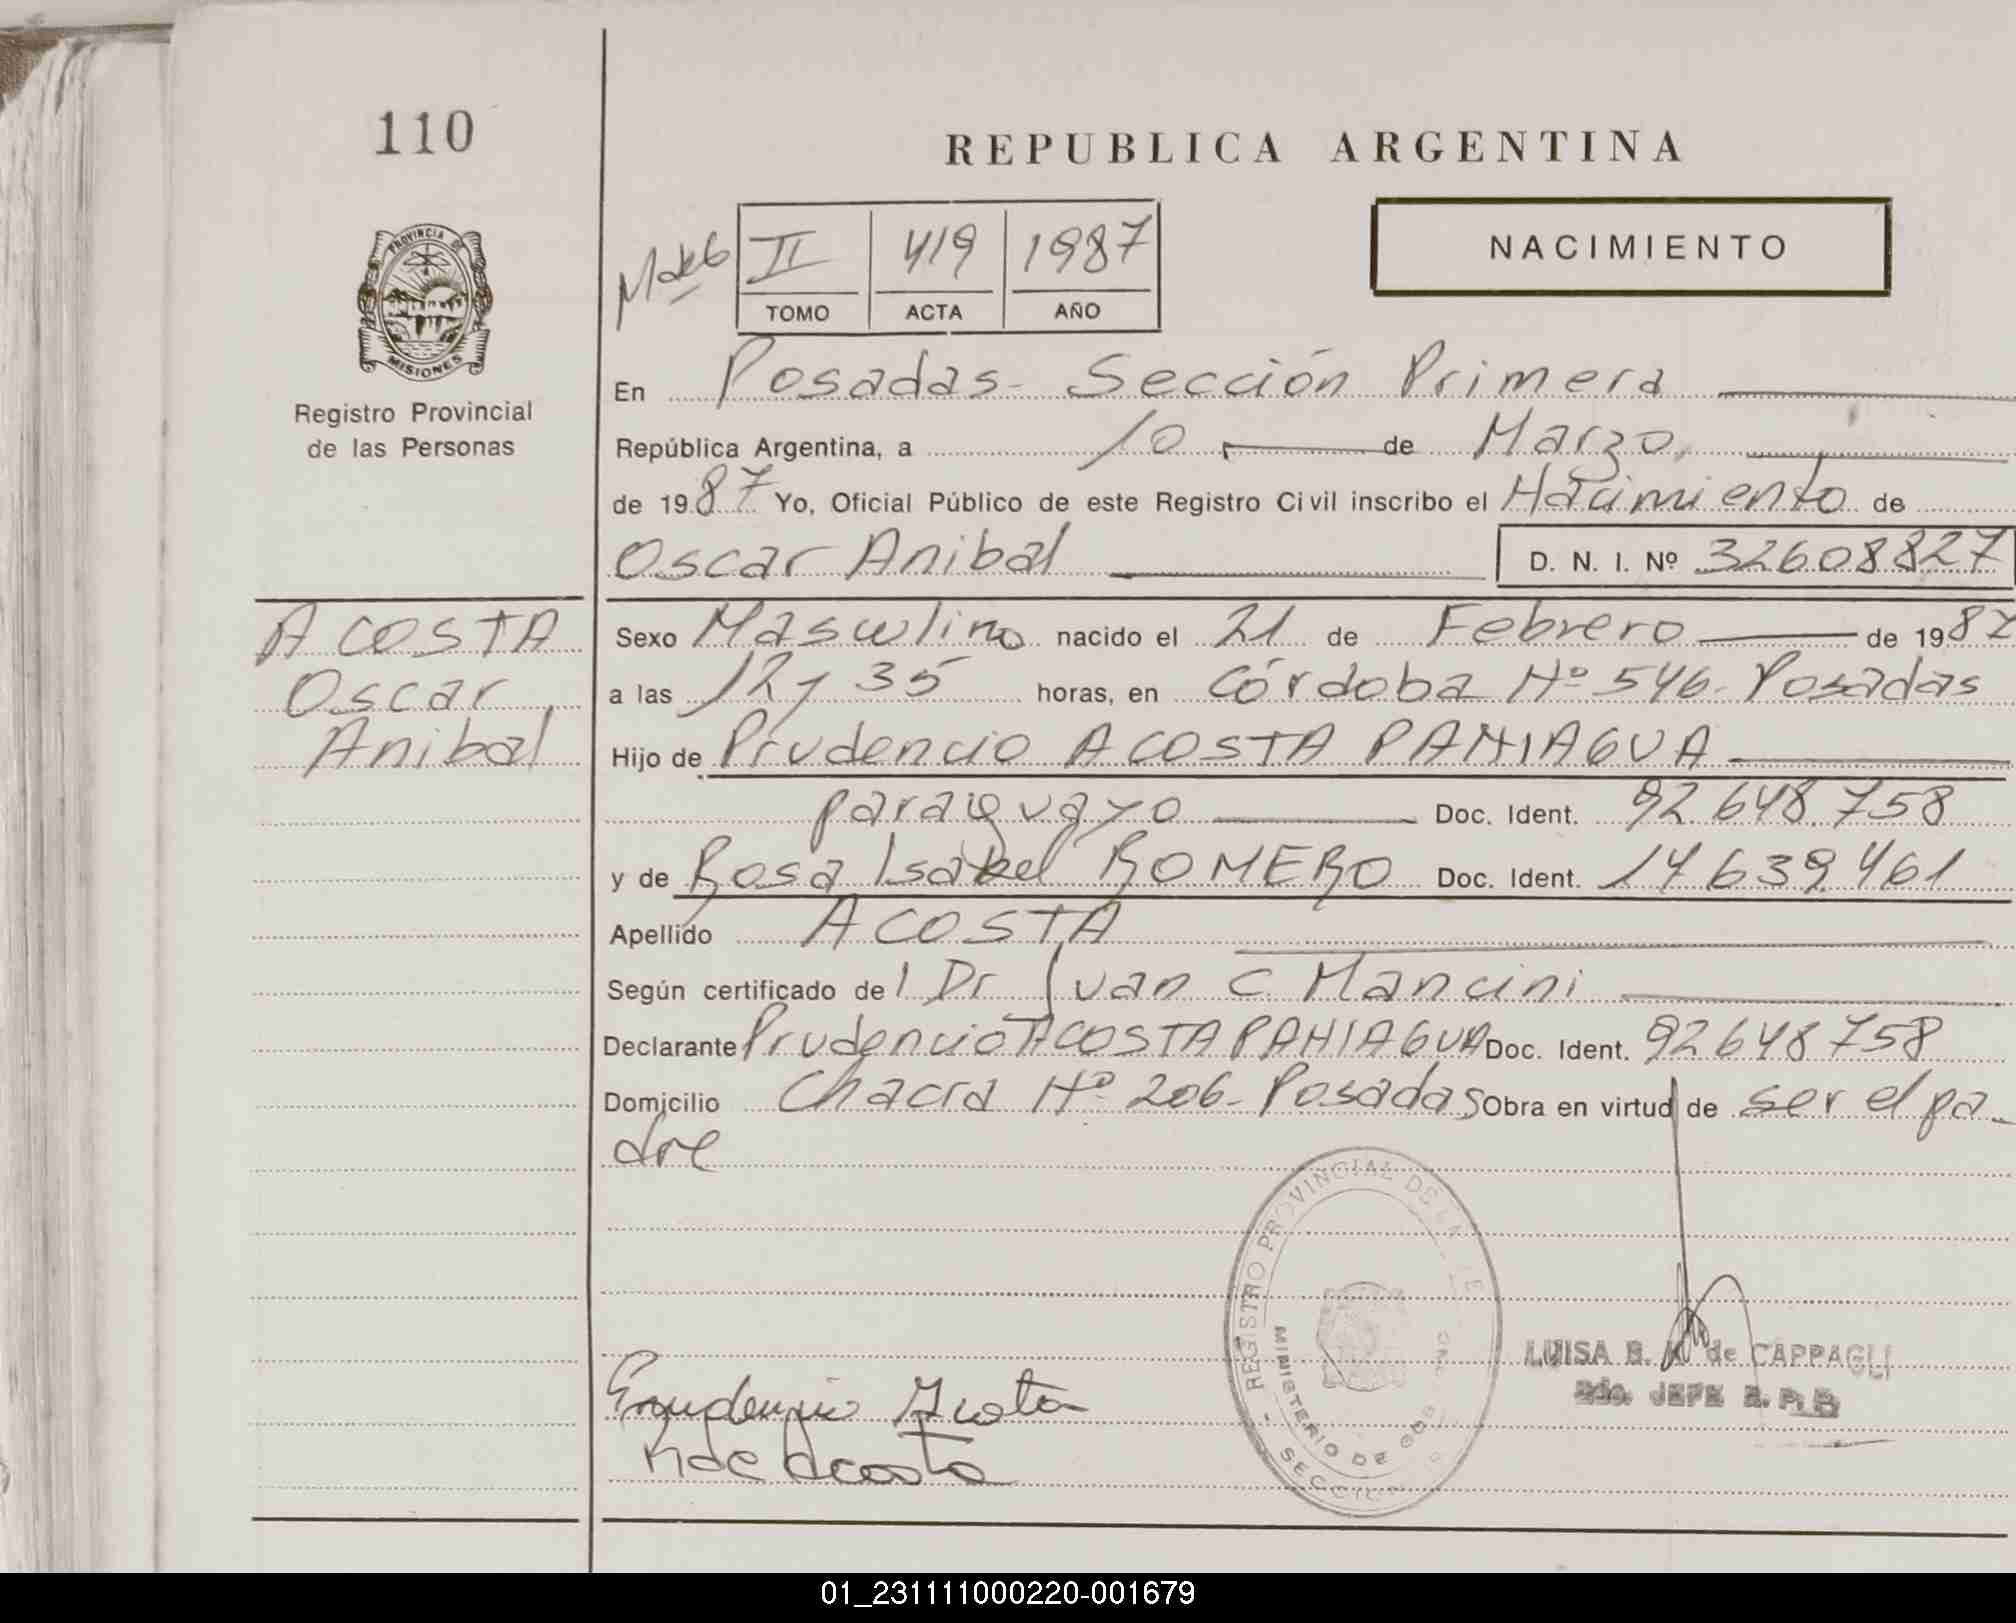 110
REPUBLICA ARGENTINA
PROVINCIA DE
MISIONES
Registro Provincial
de las Personas
II 419 1987
TOMO ACTA AÑO
NACIMIENTO
En Posadas - Sección Primera
República Argentina, a 10 de Marzo,
de 1987 Yo, Oficial Público de este Registro Civil inscribo el Nacimiento de
Oscar Anibal D. N. I. Nº 32608827
ACOSTA
Oscar
Anibal
Sexo Masculino nacido el 21 de Febrero de 1987
a las 12 y 35 horas, en Córdoba Nº 546 - Posadas
Hijo de Prudencio ACOSTA PANIAGUA
paraguayo Doc. Ident. 92.648.758
y de Rosa Isabel ROMERO Doc. Ident. 14.639.461
Apellido ACOSTA
Según certificado del Dr Juan C Mancini
Declarante Prudencio ACOSTA PANIAGUA Doc. Ident. 92648758
Domicilio Chacra Nº 206 - Posadas Obra en virtud de ser el pa-
dre
REGISTRO PROVINCIAL DE LA
MINISTERIO DE GOB
SECCION
LUISA B. de CAPPAGLI
2do. JEFE R. P.
Prudencio Acosta
R de Acosta
01_231111000220-001679